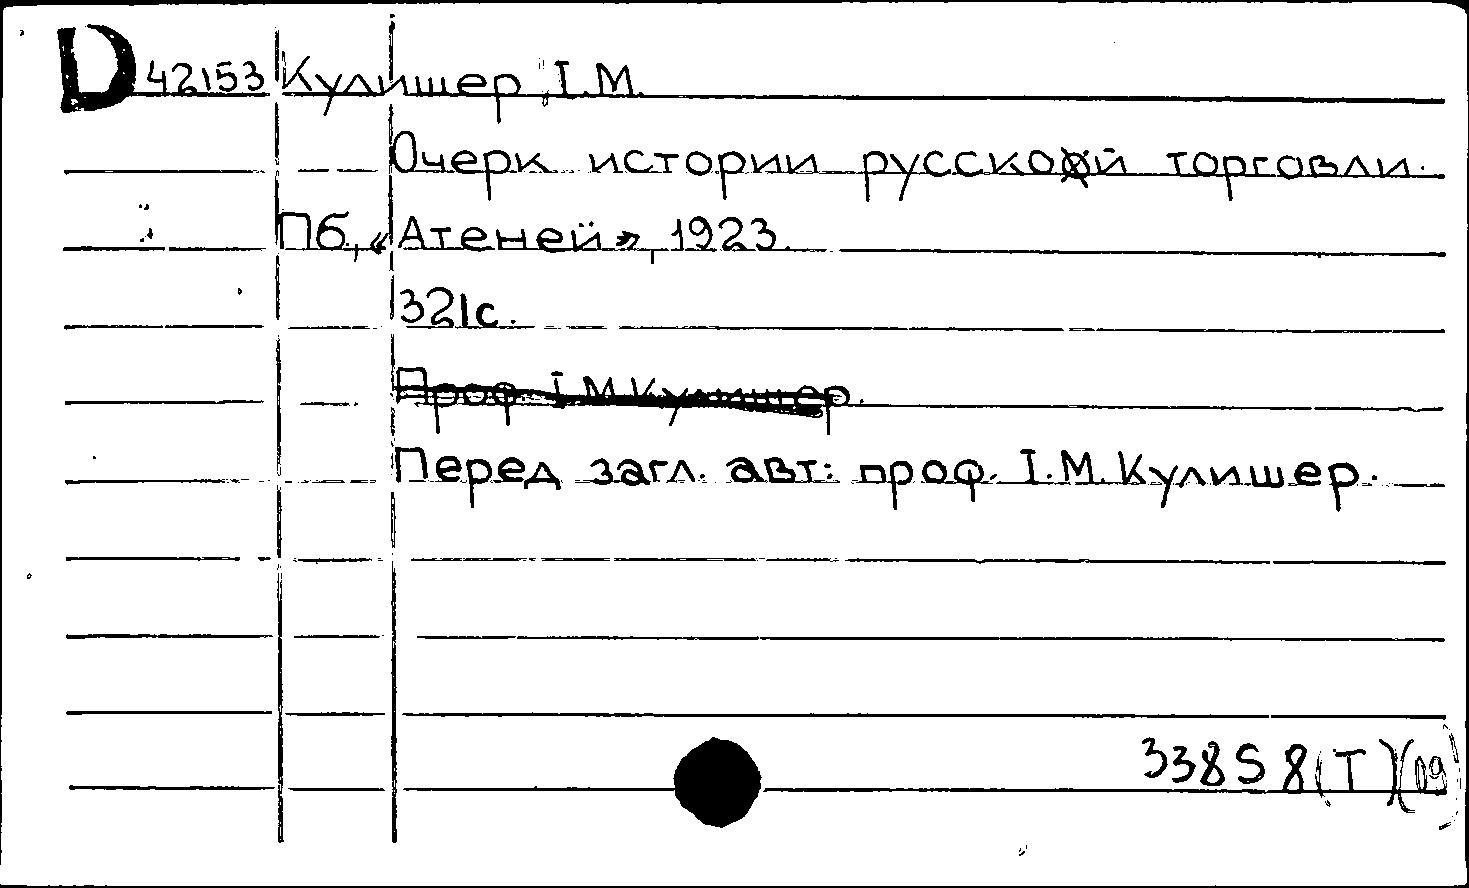 D 42153 Кулишер, І.М.
Очерк истории русской торговли.
Пб., «Атеней», 1923.
321с.
Проф. І.М.Кулишер.
Перед загл. авт: проф. І.М.Кулишер.
338S8(T)(09)